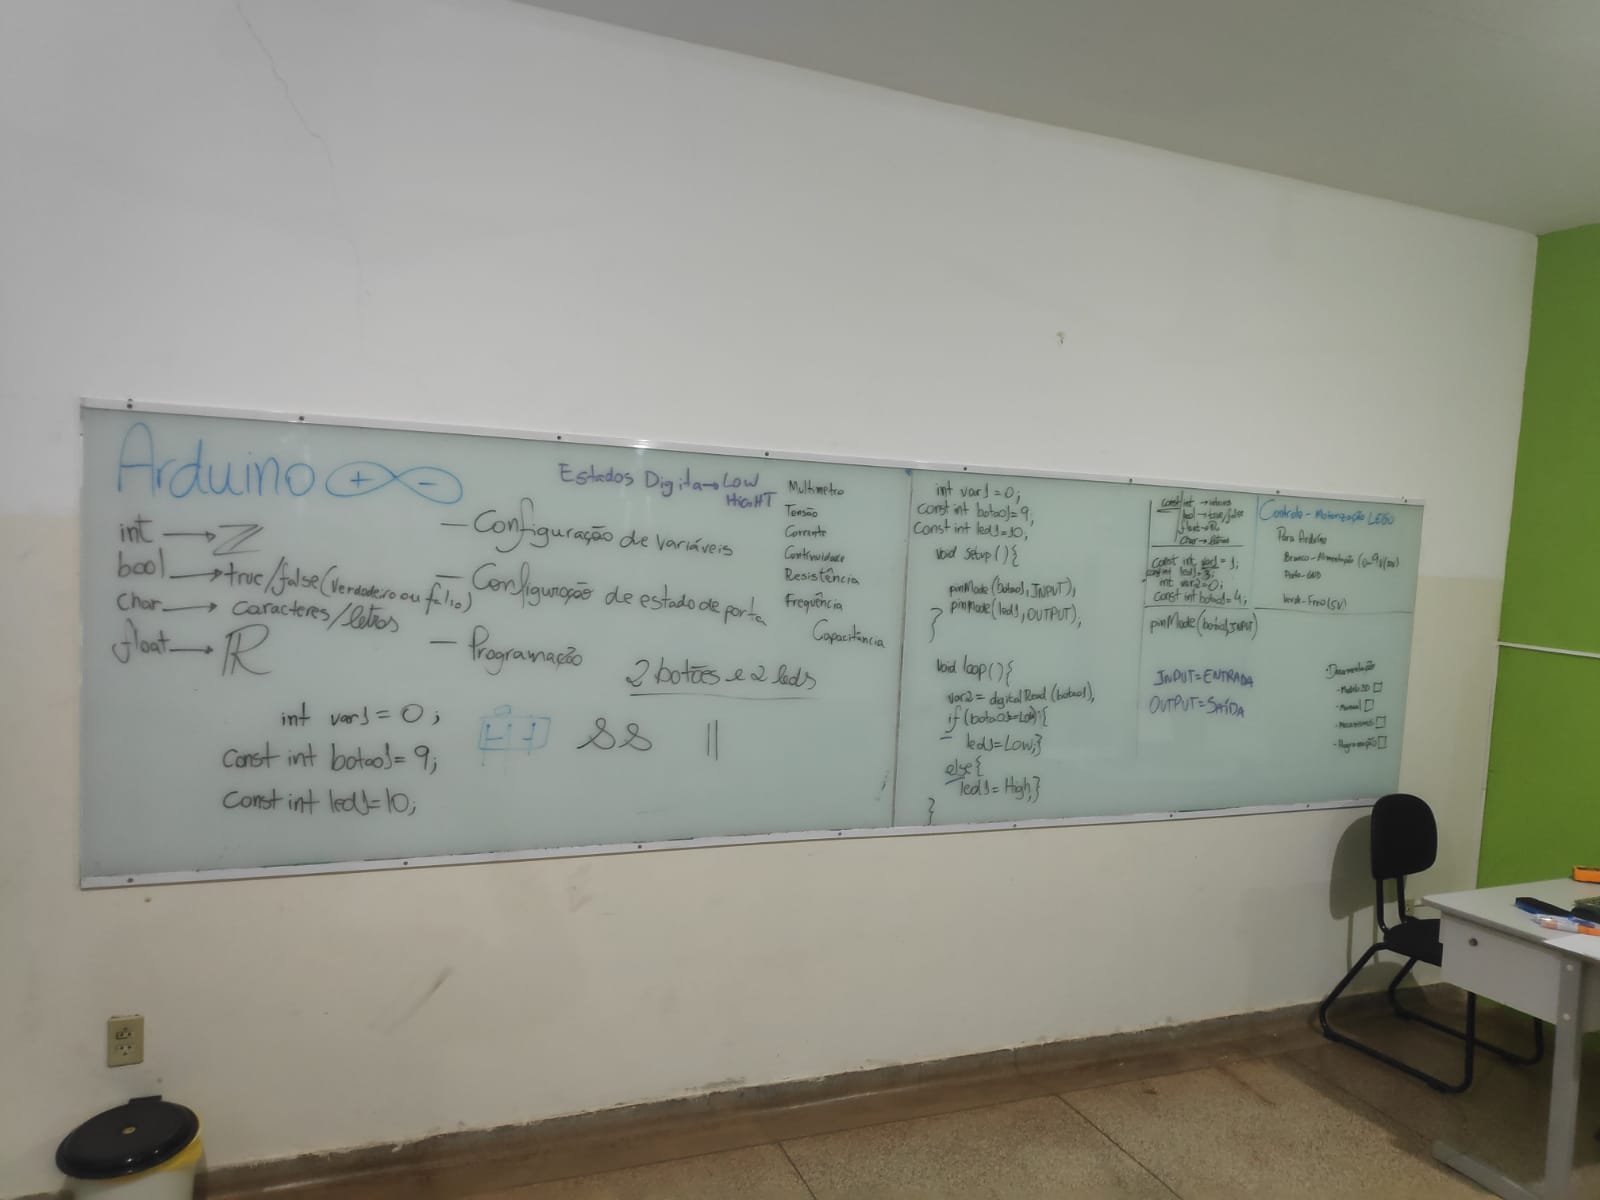 Arduino + -
int → Z
bool → true/false (verdadeiro ou falso)
char → caracteres/letras
float → R
int var1 = 0;
const int botao1 = 9;
const int led1 = 10;
Estados Digita → Low
HigHT
- Configuração de variáveis
- Configuração de estado de porta
- Programação
2 botões e 2 leds
SS ||
Multímetro
Tensão
Corrente
Continuidade
Resistência
Frequência
Capacitância
int var1 = 0;
const int botao1 = 9,
const int led1 = 10,
void setup(){
pinMode(botao1, INPUT),
pinMode(led1, OUTPUT),
}
void loop(){
var2 = digitalRead (botao1),
if (botao1=Low) {
led1 = Low;}
else{
led1 = High;}
}
const int → inteiros
bool → true/false
float → R
char → letras
const int var1 = 1;
const int led1 = 3;
int var2 = 0;
const int botao1 = 4,
pinMode(botao1, INPUT)
INPUT = ENTRADA
OUTPUT = SAÍDA
Controle - Motorização LEGO
Para Arduino
Branco - Alimentação
Preto - GND
Verde - Freio (5V)
- Documentação
- Modelo 3D
- Manual
- Mecanismos
- Programação